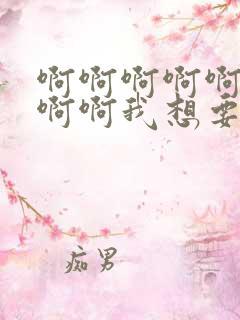 啊啊啊啊啊
啊啊我想要
痴男